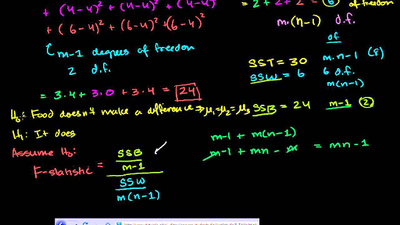 + (4-4)² + (4-4)² + (4-4)²
+ (6-4)² + (6-4)² + (6-4)²
m-1 degrees of freedom
2 d.f.
= 3·4 + 3·0 + 3·4 = 24
= 2 + 2 + 2 = 6 of freedom
m·(n-1) d.f.
df
SST = 30 m·n-1 (8)
SSW = 6 6 d.f.
m(n-1)
H₀: Food doesn't make a difference ⇒ μ₁=μ₂=μ₃ SSB = 24 m-1 (2)
H₁: It does
Assume H₀:
F-statistic = SSB
m-1
SSW
m(n-1)
m-1 + m(n-1)
m-1 + mn - m = mn-1